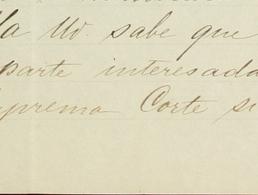 la Ud. sabe que
parte interesada
uprema Corte si